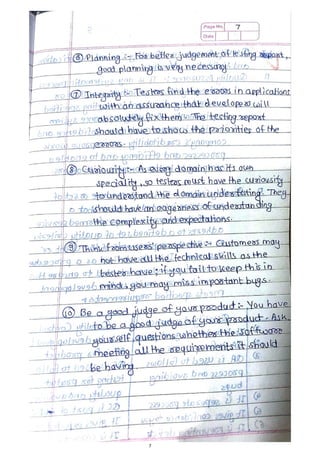 Page No. 7
Date
⑥ Planning :- For better judgement of testing report,
good planning is very necessary
⑦ Integrity :- Testers find the errors in applications
with an assurance that developers will
absolutely fix them. The testing report
should have to show the priorities of the
errors.
⑧ Curiousity :- As every domain has its own
speciality, so testers must have the curiousity
to understand the domain under testing. They
should have an eagerness of understanding
the complexity and expectations.
⑨ Think from users' perspective :- Customers may
not have all the technical skills as the
testers have; if you fail to keep this in
mind, you may miss important bugs.
⑩ Be a good judge of your product :- You have
to be a good judge of your product. Ask
yourself, questions whether the software
meeting all the requirements it should
be having.
7